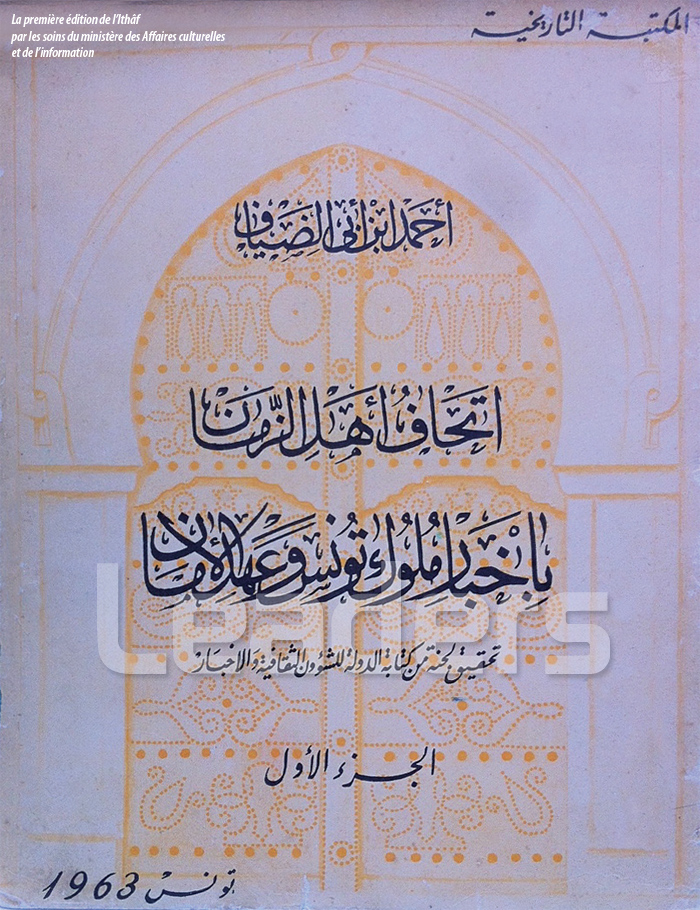 La première édition de l'Ithâf
par les soins du ministère des Affaires culturelles
et de l'information
المكتبة التاريخية
أحمد ابن أبي الضياف
اتحاف أهل الزمان
باخبار ملوك تونس وعهد الأمان
Leaders
تحقيق لجنة من كتابة الدولة للشؤون الثقافية والاخبار
الجزء الأول
تونس 1963